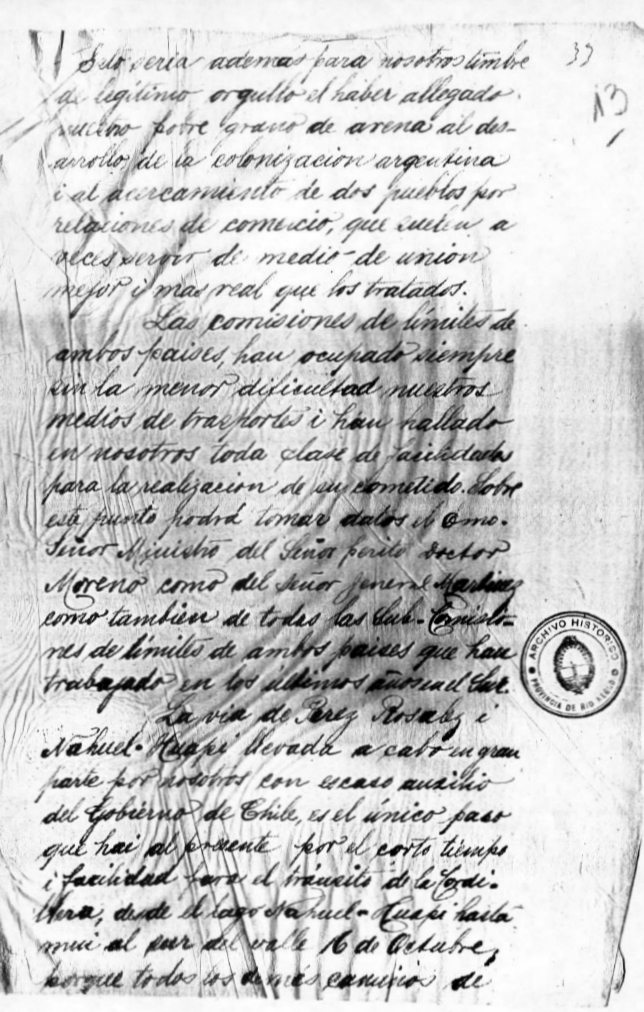 33
13
Solo sería ademas para nosotros timbre
de legítimo orgullo el háber allegado
nuestro pobre grano de arena al des-
arrollo de la colonizacion argentina
i al acercamiento de dos pueblos por
relaciones de comercio, que suelen a
veces servir de medio de union
mejor i mas real que los tratados.
Las comisiones de límites de
ambos paises, han ocupado siempre
sin la menor dificultad nuestros
medios de trasportes i han hallado
en nosotros toda clase de facilidades
para la realizacion de su cometido. Sobre
este punto podrá tomar datos el Exmo.
Señor Ministro del Señor perito Doctor
Moreno como del señor jeneral Martinez
como tambien de todas las Sub-Comisio-
nes de límites de ambos paises que han
trabajado en los últimos años en el Sur.
La via de Perez Rosalez i
Nahuel-Huapi llevada a cabo en gran
parte por nosotros con escaso auxilio
del Gobierno de Chile, es el único paso
que hai al presente por el corto tiempo
i facilidad para el tránsito de la Cordi-
llera, desde el lago Nahuel-Huapi hasta
mui al sur del valle 16 de Octubre,
porque todos los demas caminos de
ARCHIVO HISTORICO
PROVINCIA DE RIO NEGRO